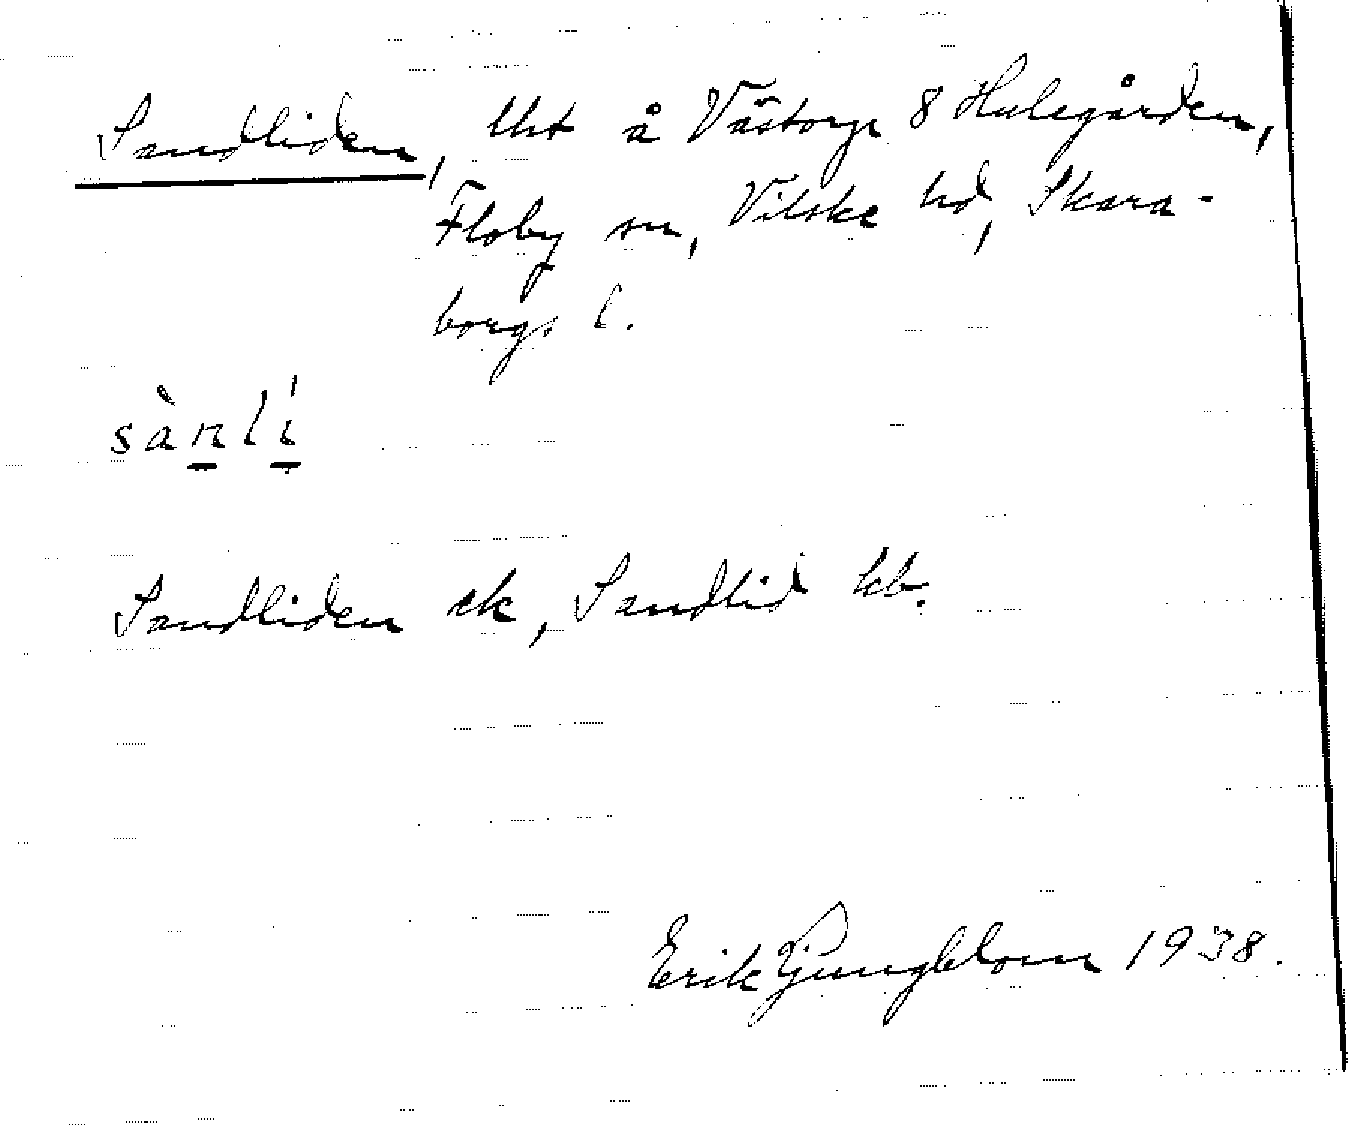 Sandliden, lht å Västorp 8 Hulegården,
Floby sn, Vilske hd, Skara-
borgs l.
sànlí
Sandliden ek, Sandlid kb.
Erik Ljungblom 1938.